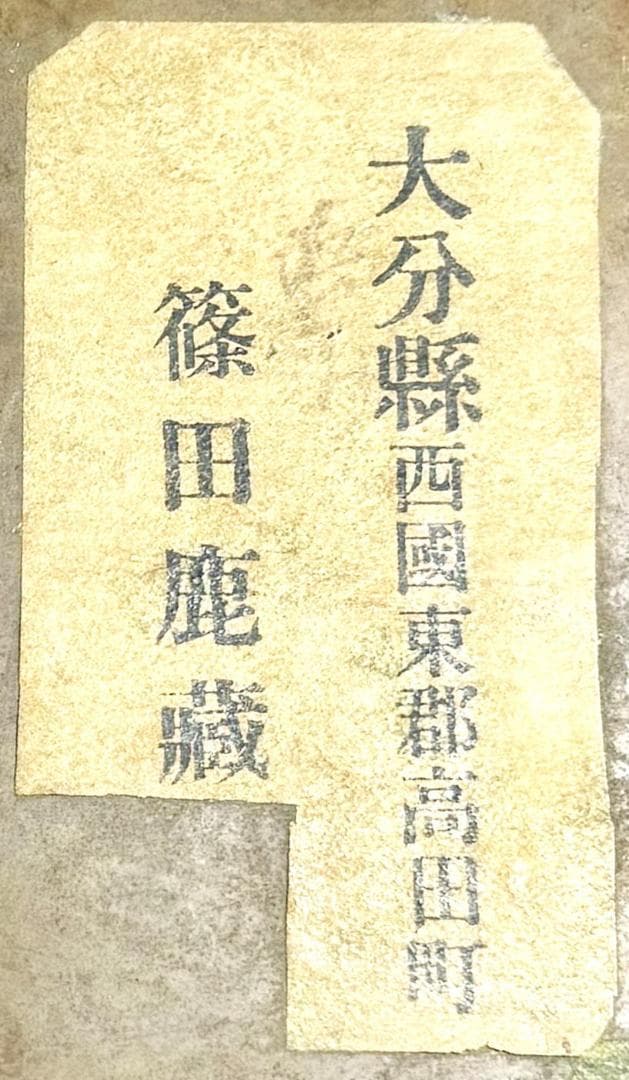 大分縣西國東郡高田町
篠田鹿藏